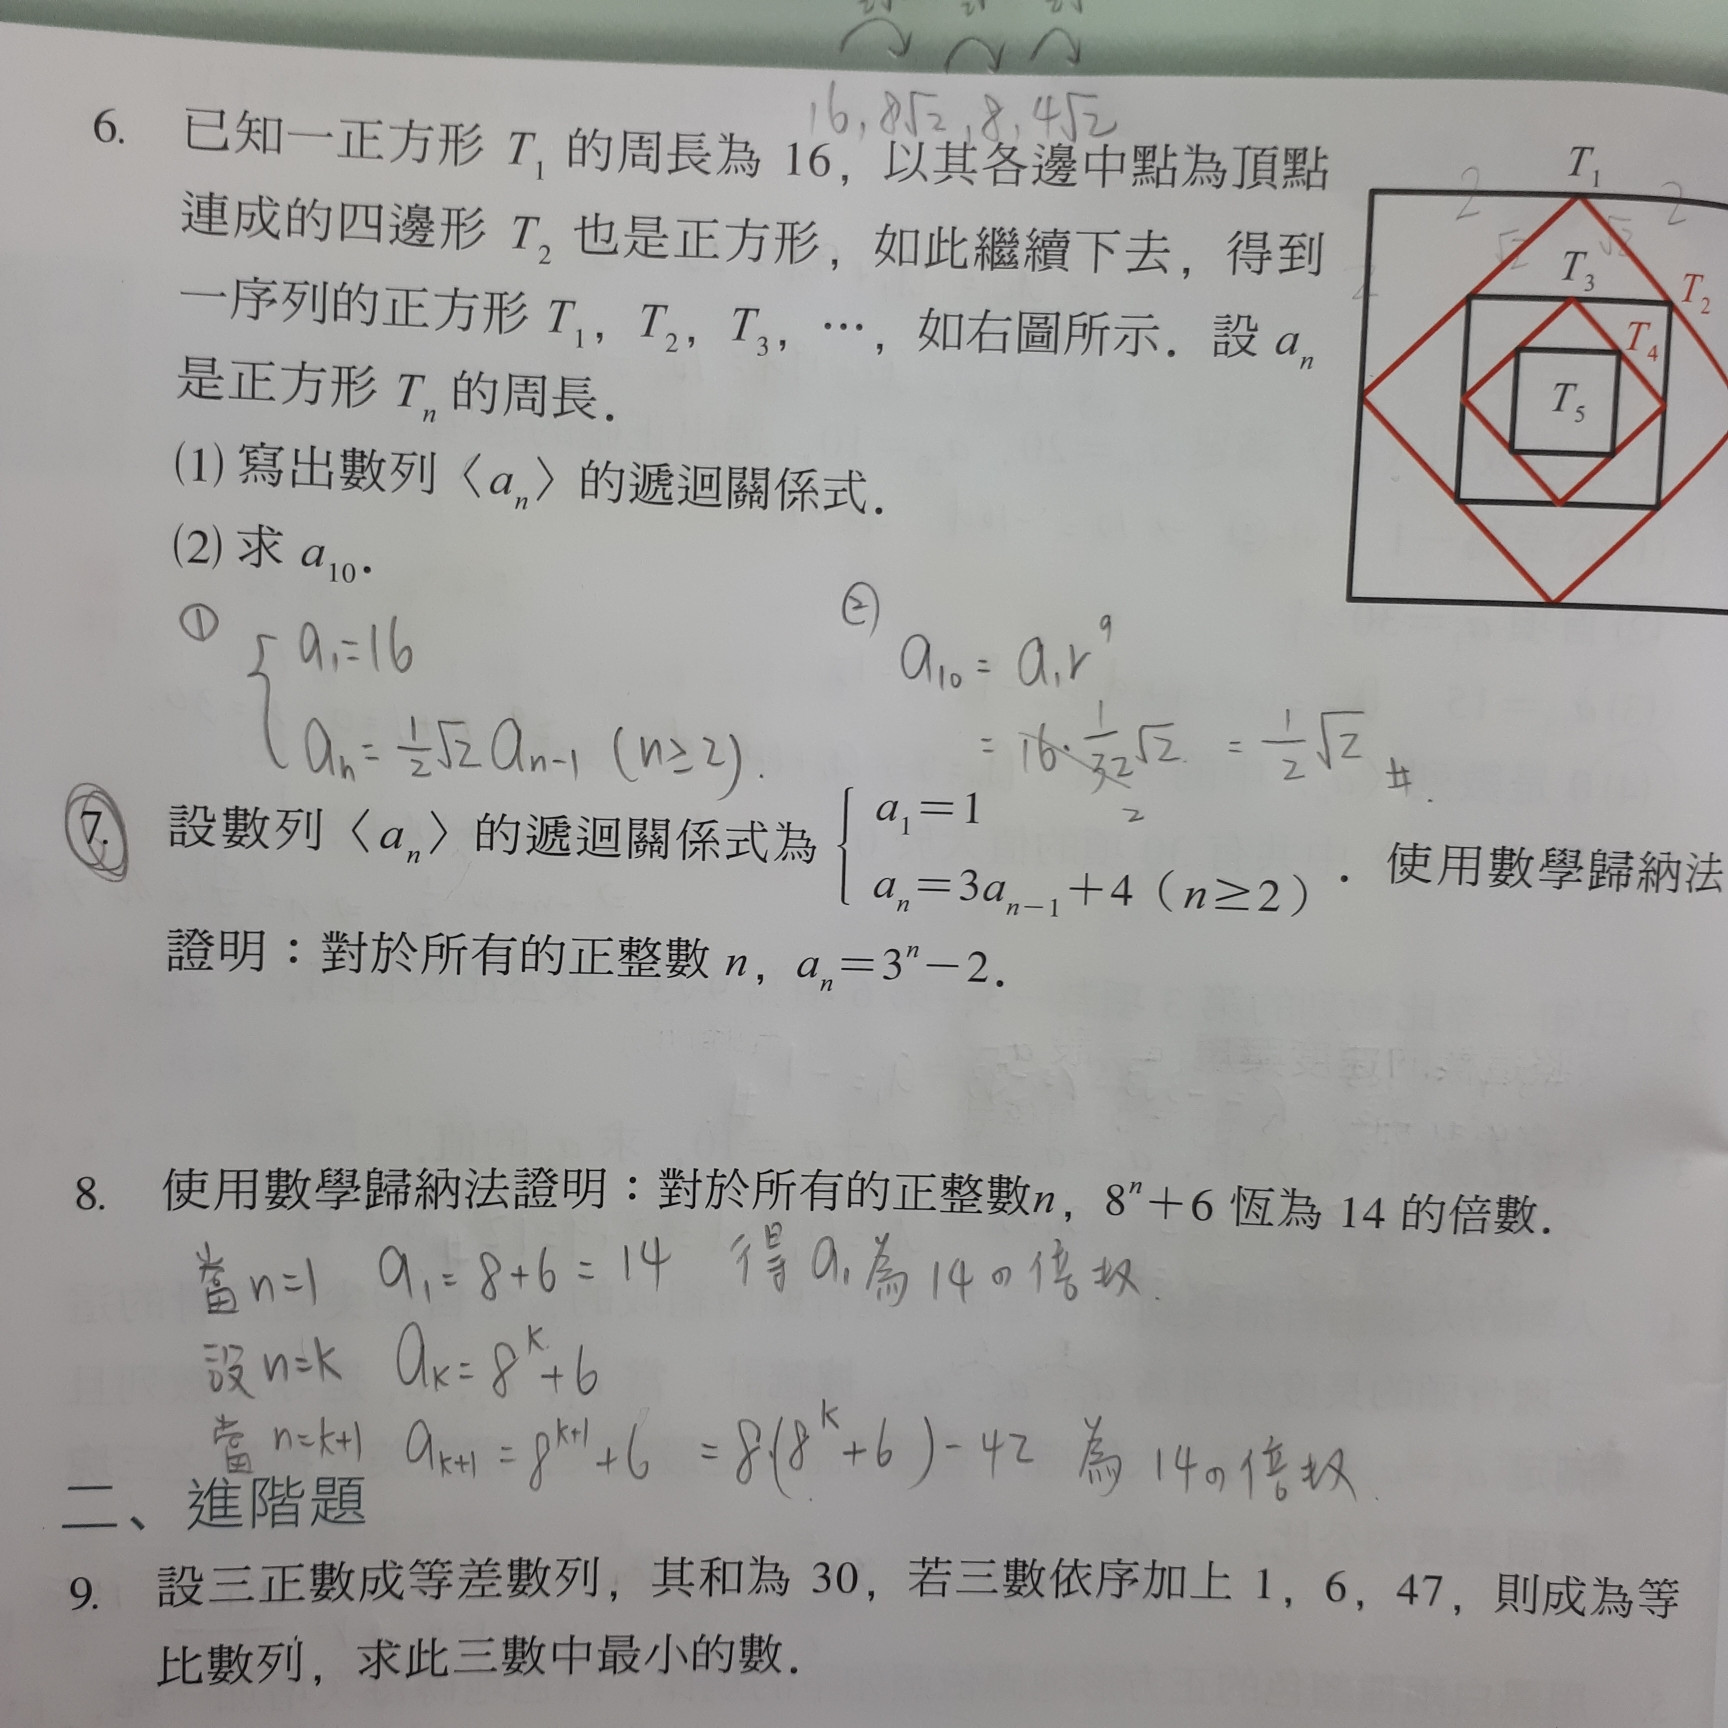 16, 8√2, 8, 4√2
6. 已知一正方形 T₁ 的周長為 16，以其各邊中點為頂點
連成的四邊形 T₂ 也是正方形，如此繼續下去，得到
一序列的正方形 T₁，T₂，T₃，⋯，如右圖所示．設 aₙ
是正方形 Tₙ 的周長．
(1) 寫出數列〈aₙ〉的遞迴關係式．
(2) 求 a₁₀．
T₁
2 2
√2 √2
2
T₃
T₂
T₄
T₅
① { a₁=16
aₙ = 1/2 √2 aₙ₋₁ (n≥2).
② a₁₀ = a₁r⁹
= 16 · 1/32 √2 = 1/2 √2 #.
2
7. 設數列〈aₙ〉的遞迴關係式為 { a₁=1
aₙ=3aₙ₋₁+4（n≥2）．使用數學歸納法
證明：對於所有的正整數 n，aₙ=3ⁿ−2．
8. 使用數學歸納法證明：對於所有的正整數n，8ⁿ+6 恆為 14 的倍數．
當 n=1 a₁=8+6=14 得 a₁ 為 14 の 倍数.
設 n=k aₖ=8ᵏ+6
當 n=k+1 aₖ₊₁=8ᵏ⁺¹+6 =8(8ᵏ+6)-42 為 14 の 倍数.
二、進階題
9. 設三正數成等差數列，其和為 30，若三數依序加上 1，6，47，則成為等
比數列，求此三數中最小的數．